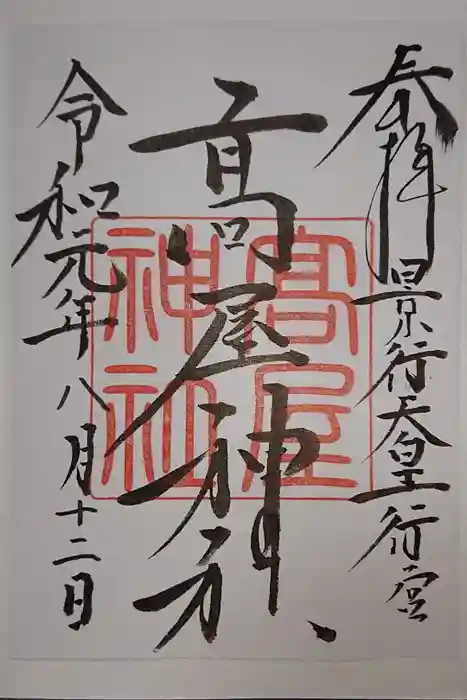 奉拝 景行天皇行宮
高屋神社
高屋神社
令和元年八月十二日